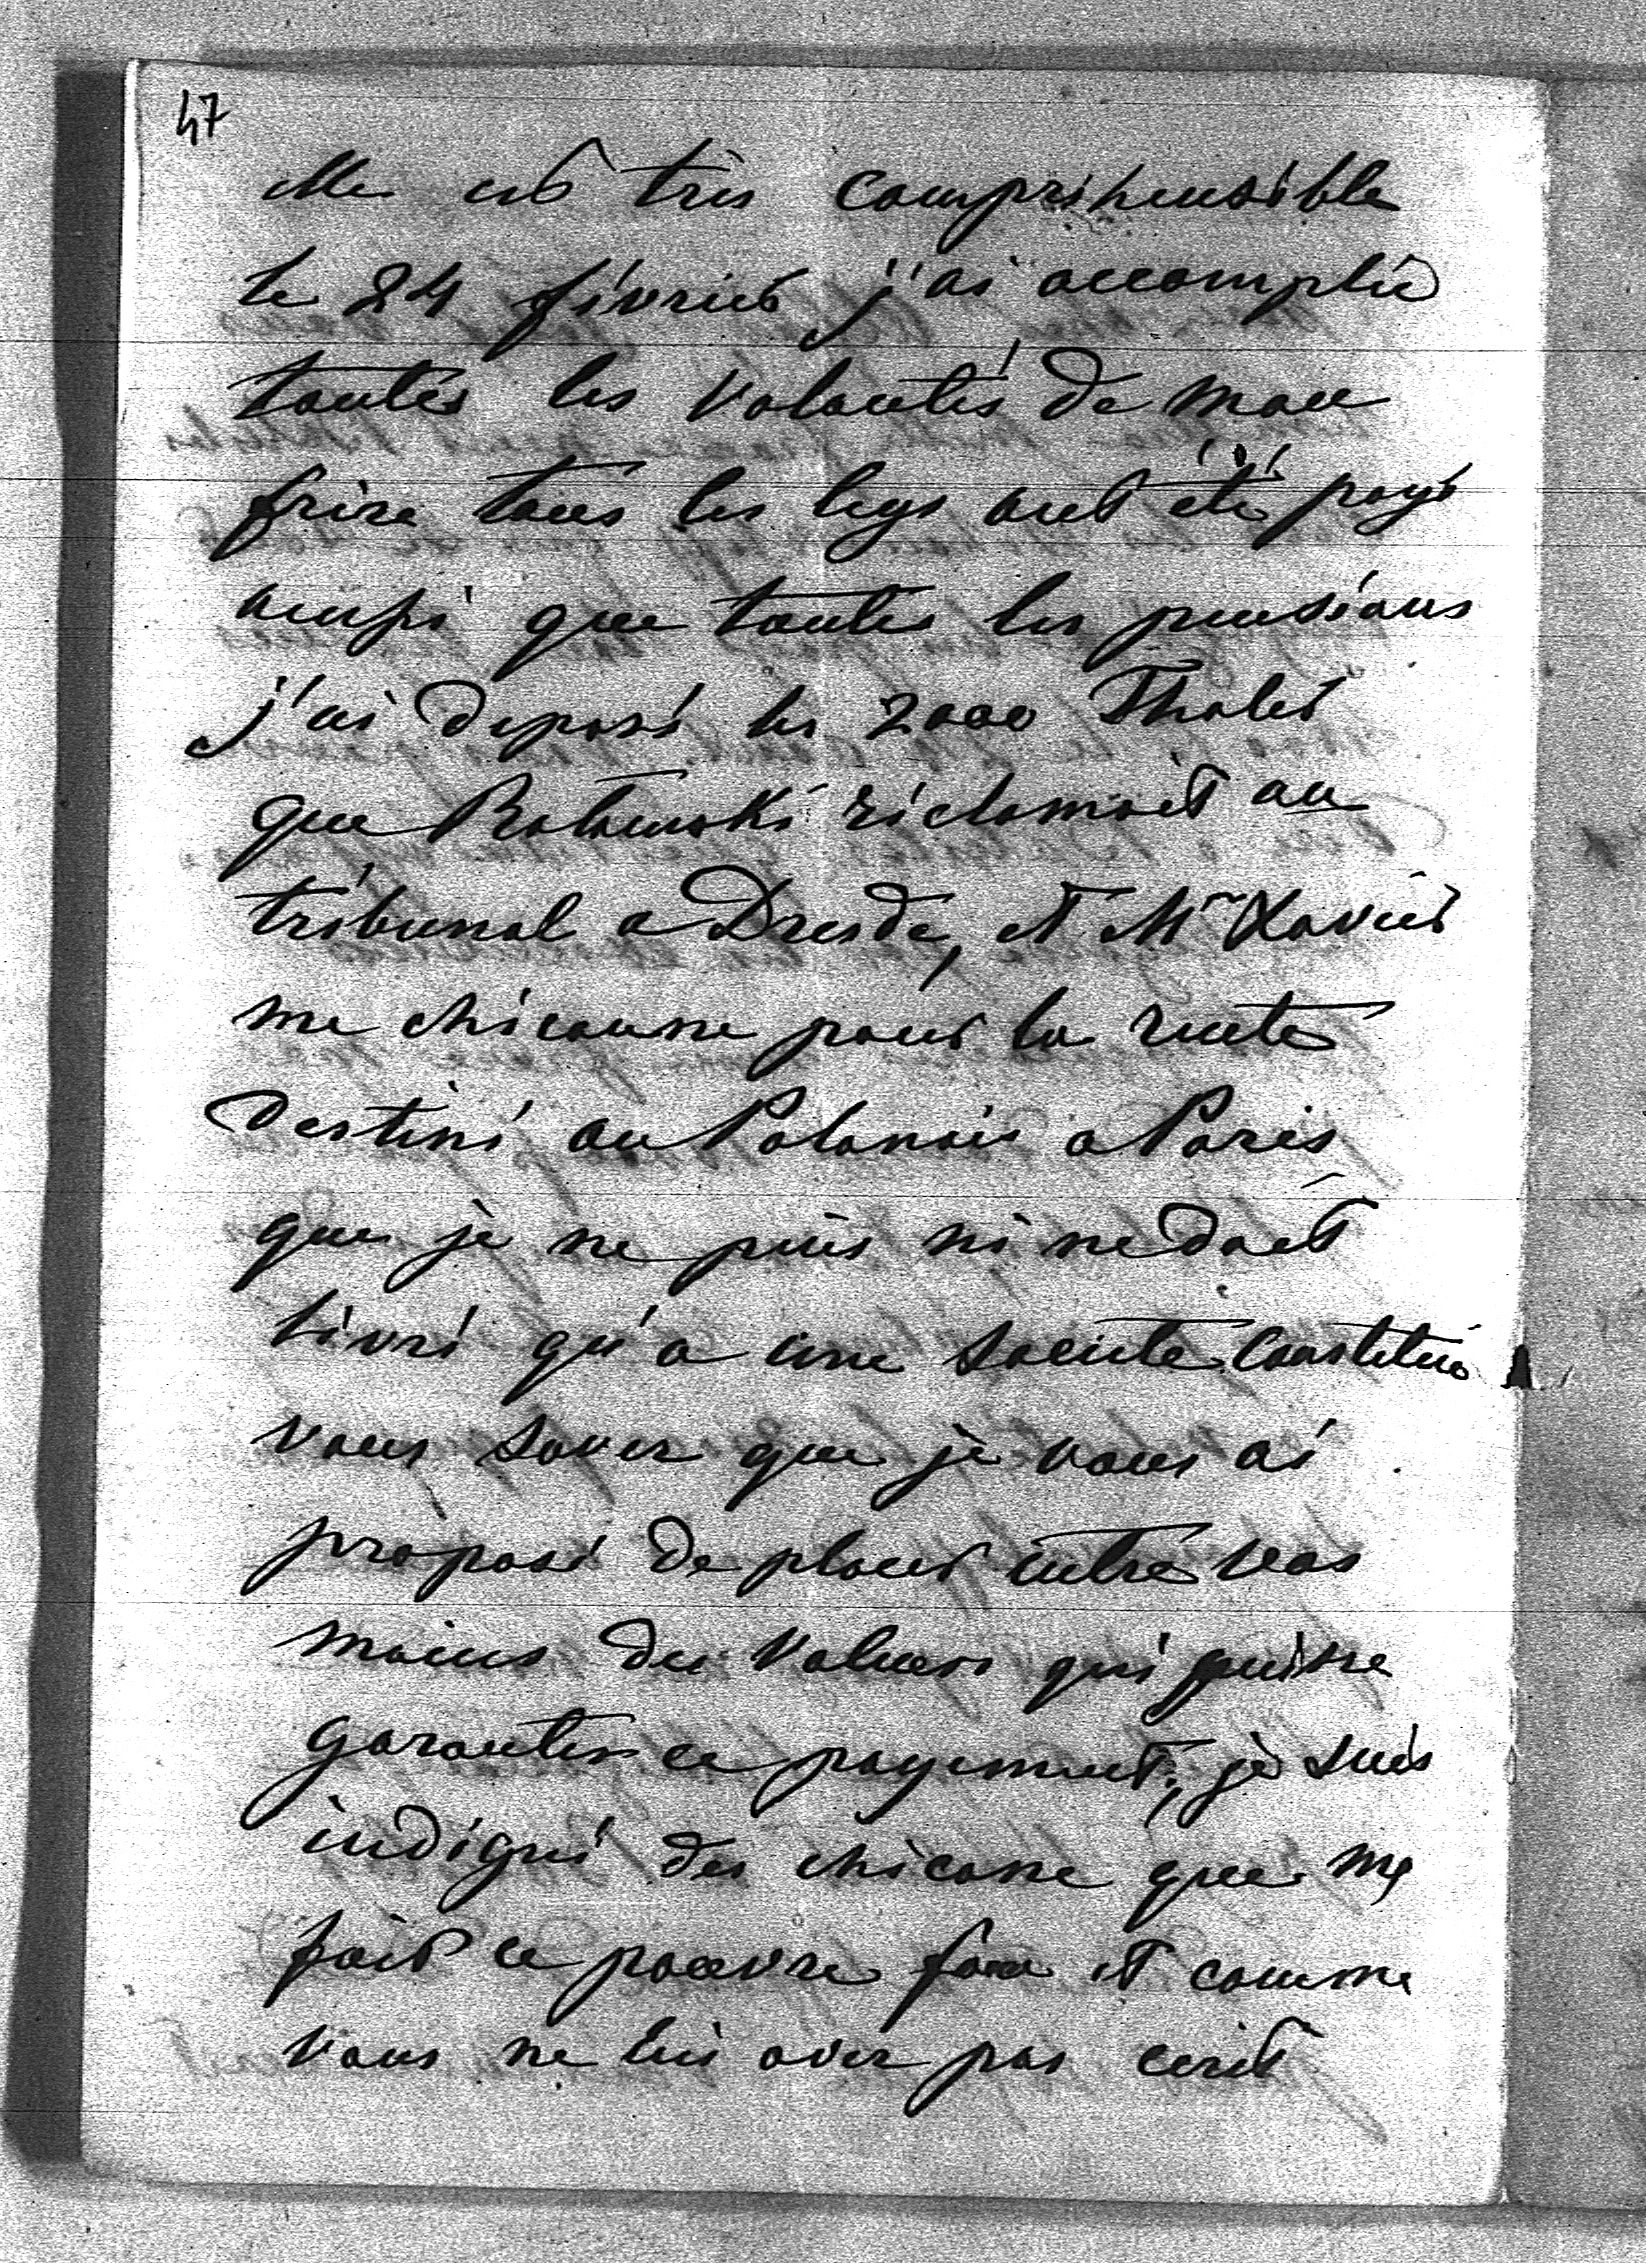 47
elle est très compréhensible
le 24 févrièr j'ai accomplie
toutes les volontés de mon
frère tous les legs ont été payé
ainsi que toutes les pensions
j'ai deposé les 2000 Thaler
que réclamait au
tribunal a Dresde, et Mr Xavier
me chicanne pour la rente
destiné au Polonais a Paris
que je ne puis ni ne doit
livré qu'a une societe constitué
vous saver que je vous ai
proposé de placer entre vos
mains des valeurs qui puisse
garantir ce payement, je suis
indigné des chicane que me
fait ce pauvre fou et comme
vous ne lui aver pas écrit